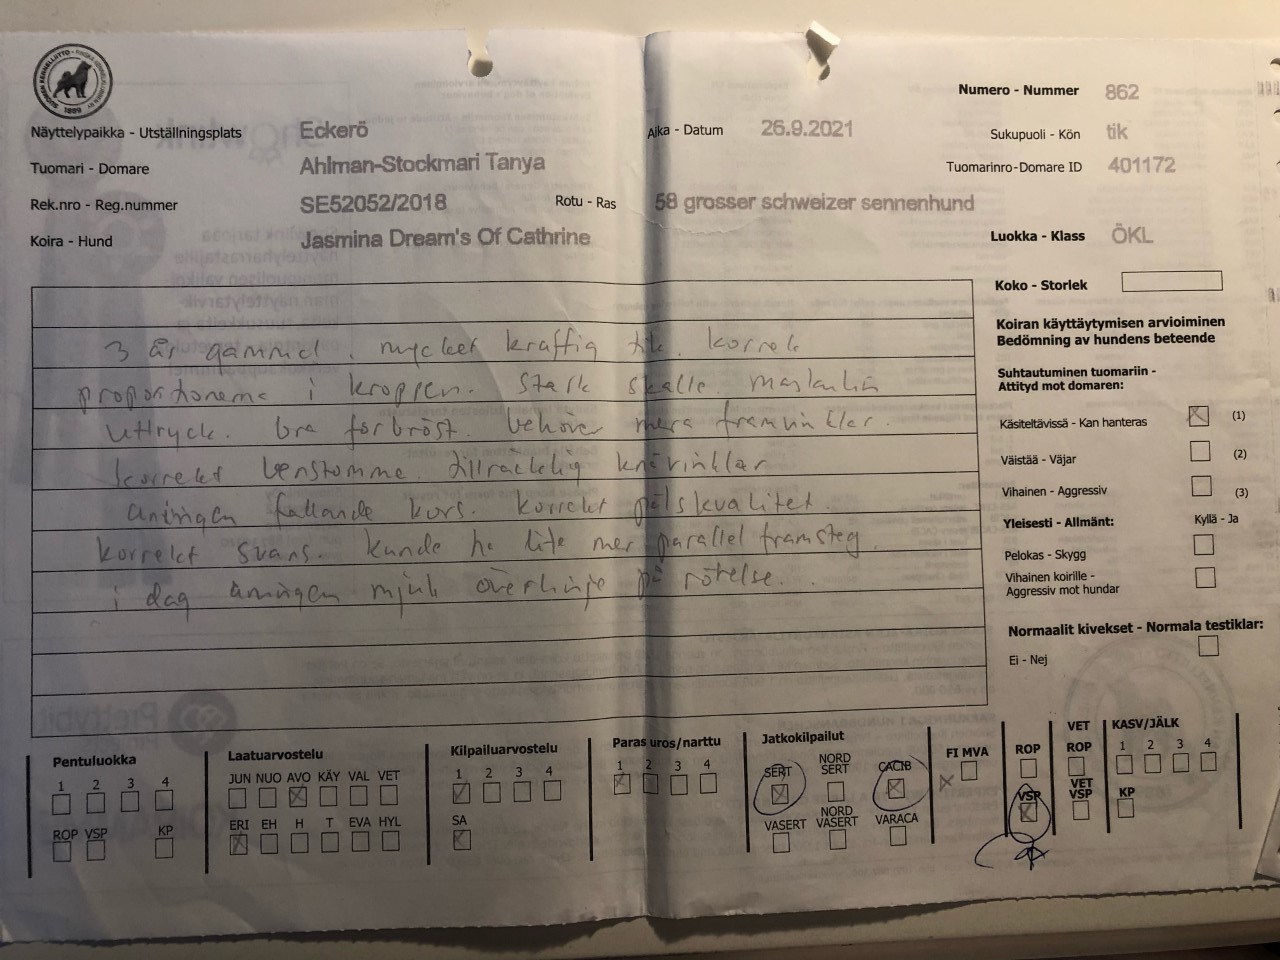 SUOMEN KENNELLIITTO - FINSKA KENNELKLUBBEN RY
1889
Numero - Nummer 862
Näyttelypaikka - Utställningsplats Eckerö Aika - Datum 26.9.2021 Sukupuoli - Kön tik
Tuomari - Domare Ahlman-Stockmari Tanya Tuomarinro-Domare ID 401172
Rek.nro - Reg.nummer SE52052/2018 Rotu - Ras 58 grosser schweizer sennenhund
Koira - Hund Jasmina Dream's Of Cathrine Luokka - Klass ÖKL
3 år gammal. mycket kraftig tik. korrek
proportionerna i kroppen. stark skalle. maskulin
uttryck. bra förbröst. behöver mera framvinklar.
korrekt benstomme. tillräcklig knävinklar
aningen fallande kors. korrekt pälskvalitet.
korrekt svans. kunde ha lite mer parallel framsteg.
i dag aningen mjuk överlinje på rörelse...
Koko - Storlek
Koiran käyttäytymisen arvioiminen
Bedömning av hundens beteende
Suhtautuminen tuomariin -
Attityd mot domaren:
Käsiteltävissä - Kan hanteras (1)
Väistää - Väjar (2)
Vihainen - Aggressiv (3)
Yleisesti - Allmänt: Kyllä - Ja
Pelokas - Skygg
Vihainen koirille -
Aggressiv mot hundar
Normaalit kivekset - Normala testiklar:
Ei - Nej
Pentuluokka
1 2 3 4
ROP VSP KP
Laatuarvostelu
JUN NUO AVO KÄY VAL VET
ERI EH H T EVA HYL
Kilpailuarvostelu
1 2 3 4
SA
Paras uros/narttu
1 2 3 4
Jatkokilpailut
SERT NORD SERT CACIB
VASERT NORD VASERT VARACA
FI MVA
ROP
VSP
VET ROP
VET VSP
KASV/JÄLK
1 2 3 4
KP